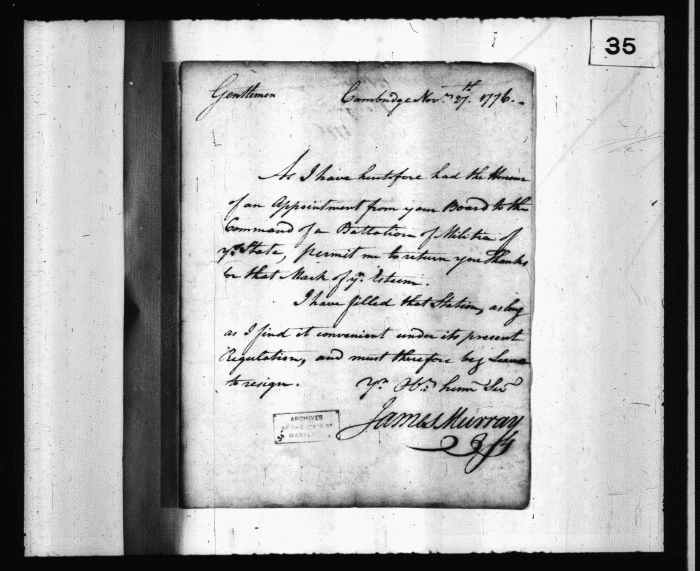 35
Gentlemen Cambridge Novr. 27th. 1776.
As I have heretofore had the Honour
of an Appointment from your Board to the
Command of a Battalion of Militia of
yr. State, permit me to return you Thanks
for that Mark of yr. Esteem.
I have filled that Station, as long
as I find it convenient under its present
Regulation, and must therefore beg Leave
to resign. Yr. Obt. humb. Servt.
James Murray
ARCHIVES
OF THE STATE OF
MARYLAND